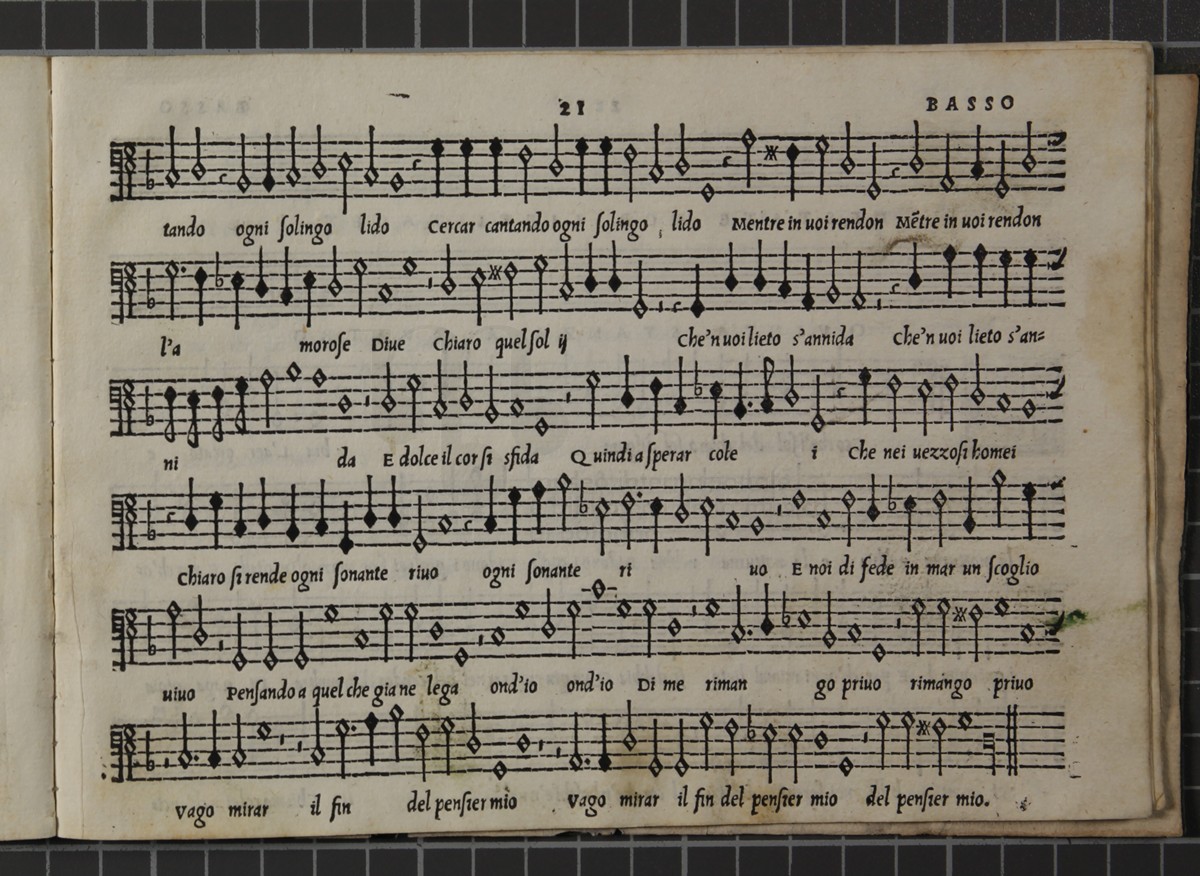 21 BASSO
tando ogni ſolingo lido Cercar cantando ogni ſolingo lido Mentre in uoi rendon Mẽtre in uoi rendon
l'a moroſe Diue Chiaro quel ſol ij Che'n uoi lieto s'annida Che'n uoi lieto s'an=
ni da E dolce il cor ſi sfida Quindi a ſperar cole i Che nei uezzoſi homei
Chiaro ſi rende ogni ſonante riuo ogni ſonante ri uo E noi di fede in mar un ſcoglio
uiuo Penſando a quel che gia ne lega ond'io ond'io Di me riman go priuo rimango priuo
Vago mirar il fin del penſier mio Vago mirar il fin del penſier mio del penſier mio.